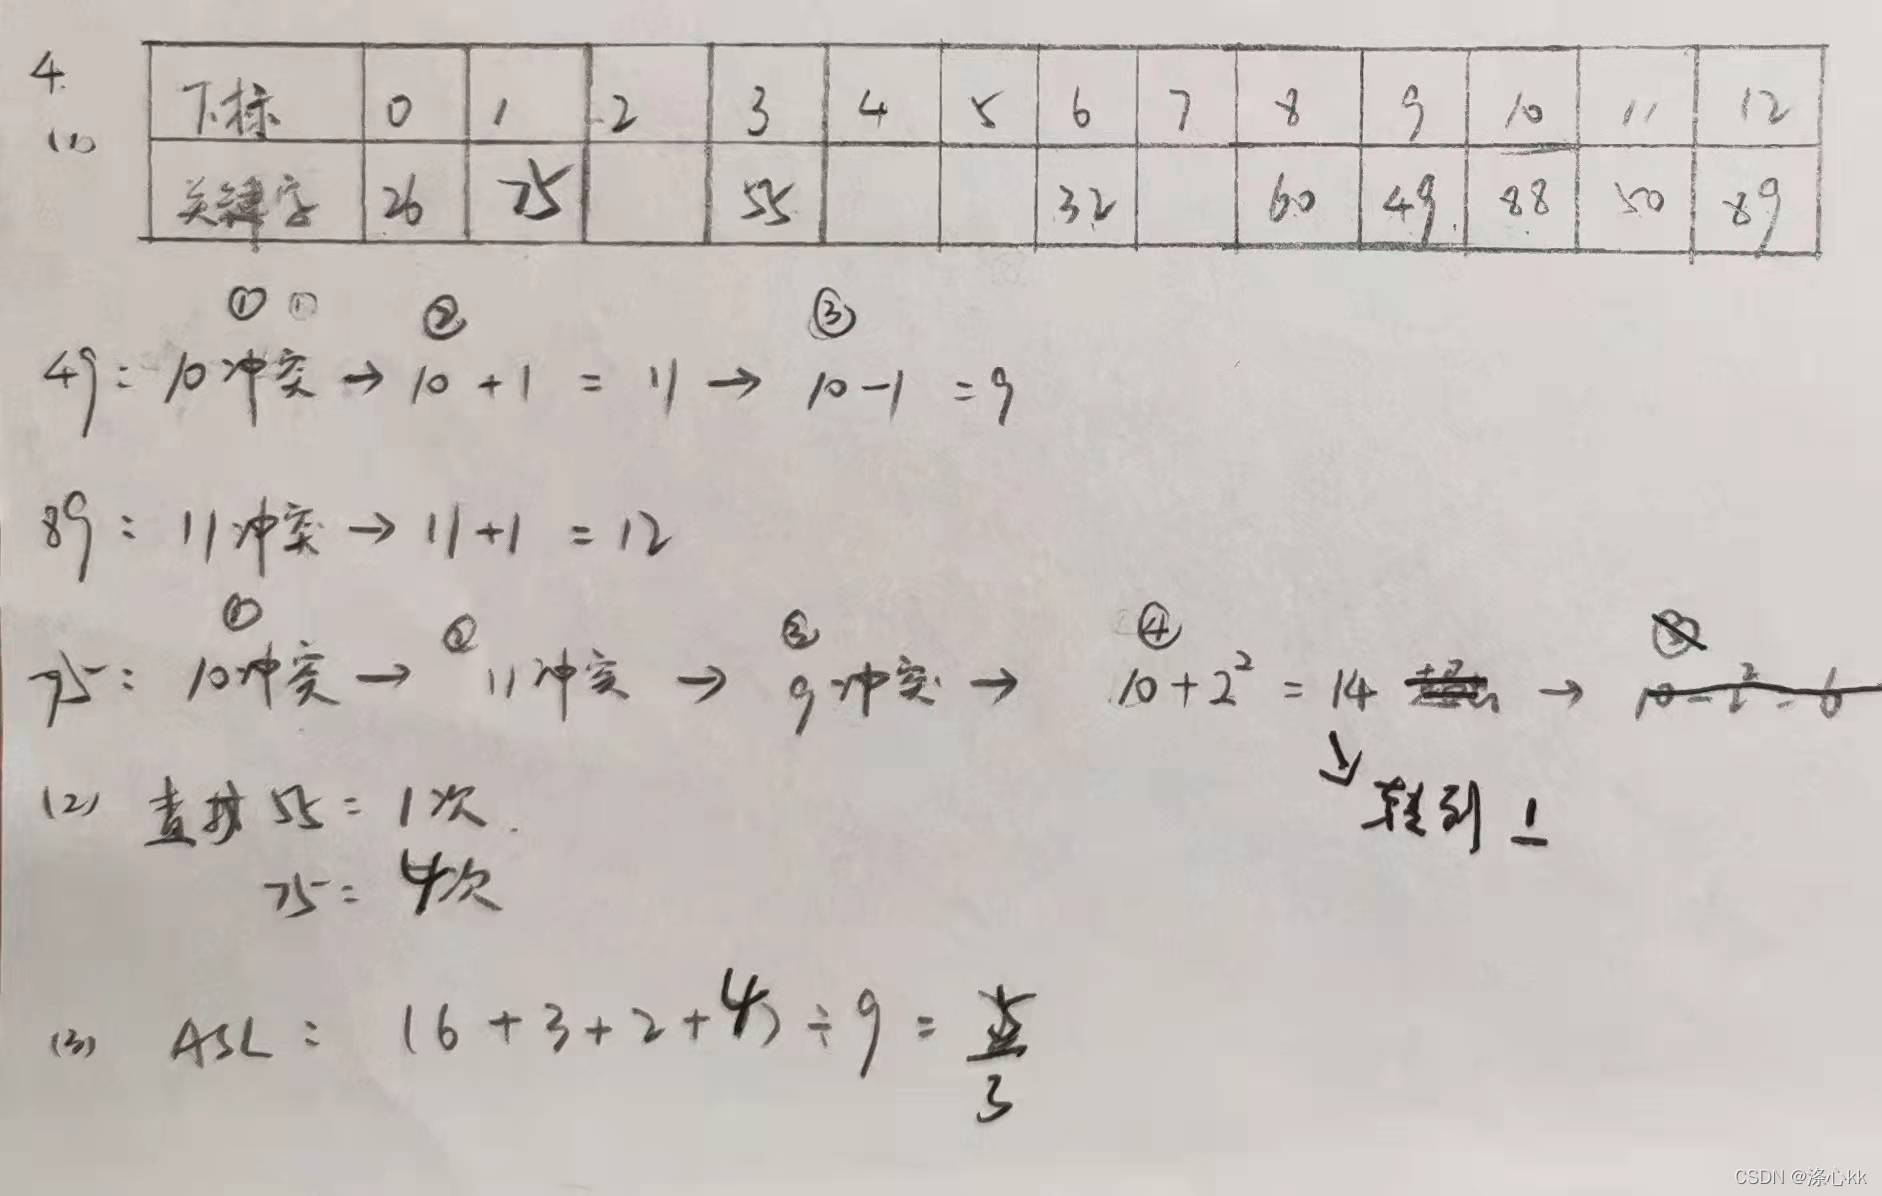 4.
(1)
下标 0 1 2 3 4 5 6 7 8 9 10 11 12
关键字 26 75 55 32 60 49 88 50 89
① ① ② ③
49: 10冲突 → 10+1 = 11 → 10-1 = 9
89: 11冲突 → 11+1 = 12
① ② ③ ④
75: 10冲突 → 11冲突 → 9冲突 → 10+2² = 14 →
↘ 转到 1
(2) 查找 55 = 1次.
75 = 4次
(3) ASL: (6+3+2+4) ÷ 9 = 5/3
CSDN @涤心kk